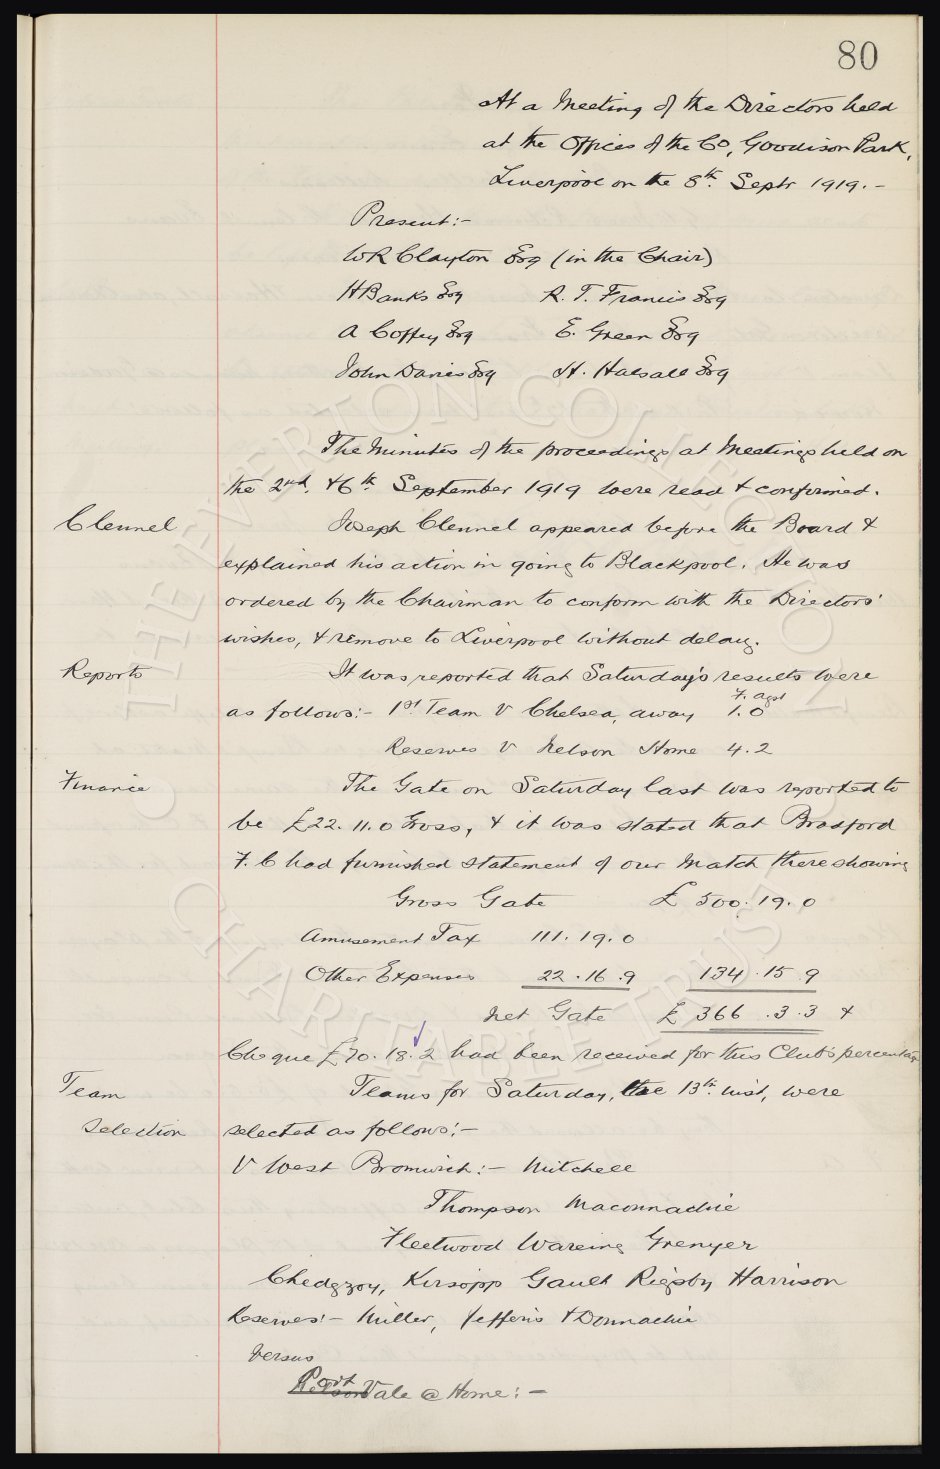 80
At a Meeting of the Directors held
at the Offices of the Co, Goodison Park,
Liverpool on the 8th. Septr 1919.-
Present:-
WR Clayton Esq (in the Chair)
H Banks Esq R. T. Francis Esq
A Coffey Esq E. Green Esq
John Davies Esq H. Halsall Esq
The Minutes of the proceedings at Meetings held on
the 2nd. & 6th September 1919 were read & confirmed.
Clennel Joseph Clennel appeared before the Board &
explained his action in going to Blackpool. He was
ordered by the Chairman to conform with the Directors'
wishes, & remove to Liverpool without delay.
Reports It was reported that Saturday's results were
F. Agst
as follows:- 1st Team V Chelsea, away 1. 0
Reserves V Nelson Home 4. 2
Finance The Gate on Saturday last was reported to
be £22. 11. 0 Gross, & it was stated that Bradford
F. C had furnished statement of our Match there showing
Gross Gate £ 500. 19. 0
Amusement Tax 111. 19. 0
Other Expenses 22. 16. 9 134. 15. 9
Net Gate £ 366. 3. 3 &
Cheque £70. 18. 2 had been received for this Club's percentage
Team Teams for Saturday, the 13th. inst, were
Selection selected as follows:-
V West Bromwich:- Mitchell
Thompson Maconnachie
Fleetwood Wareing Grenyer
Chedgzoy, Kirsopp Gault Rigsby Harrison
Reserves:- Miller, Jefferis & Donnachie
Versus
Port Vale @ Home:-
THE EVERTON COLLECTION
CHARITABLE TRUST